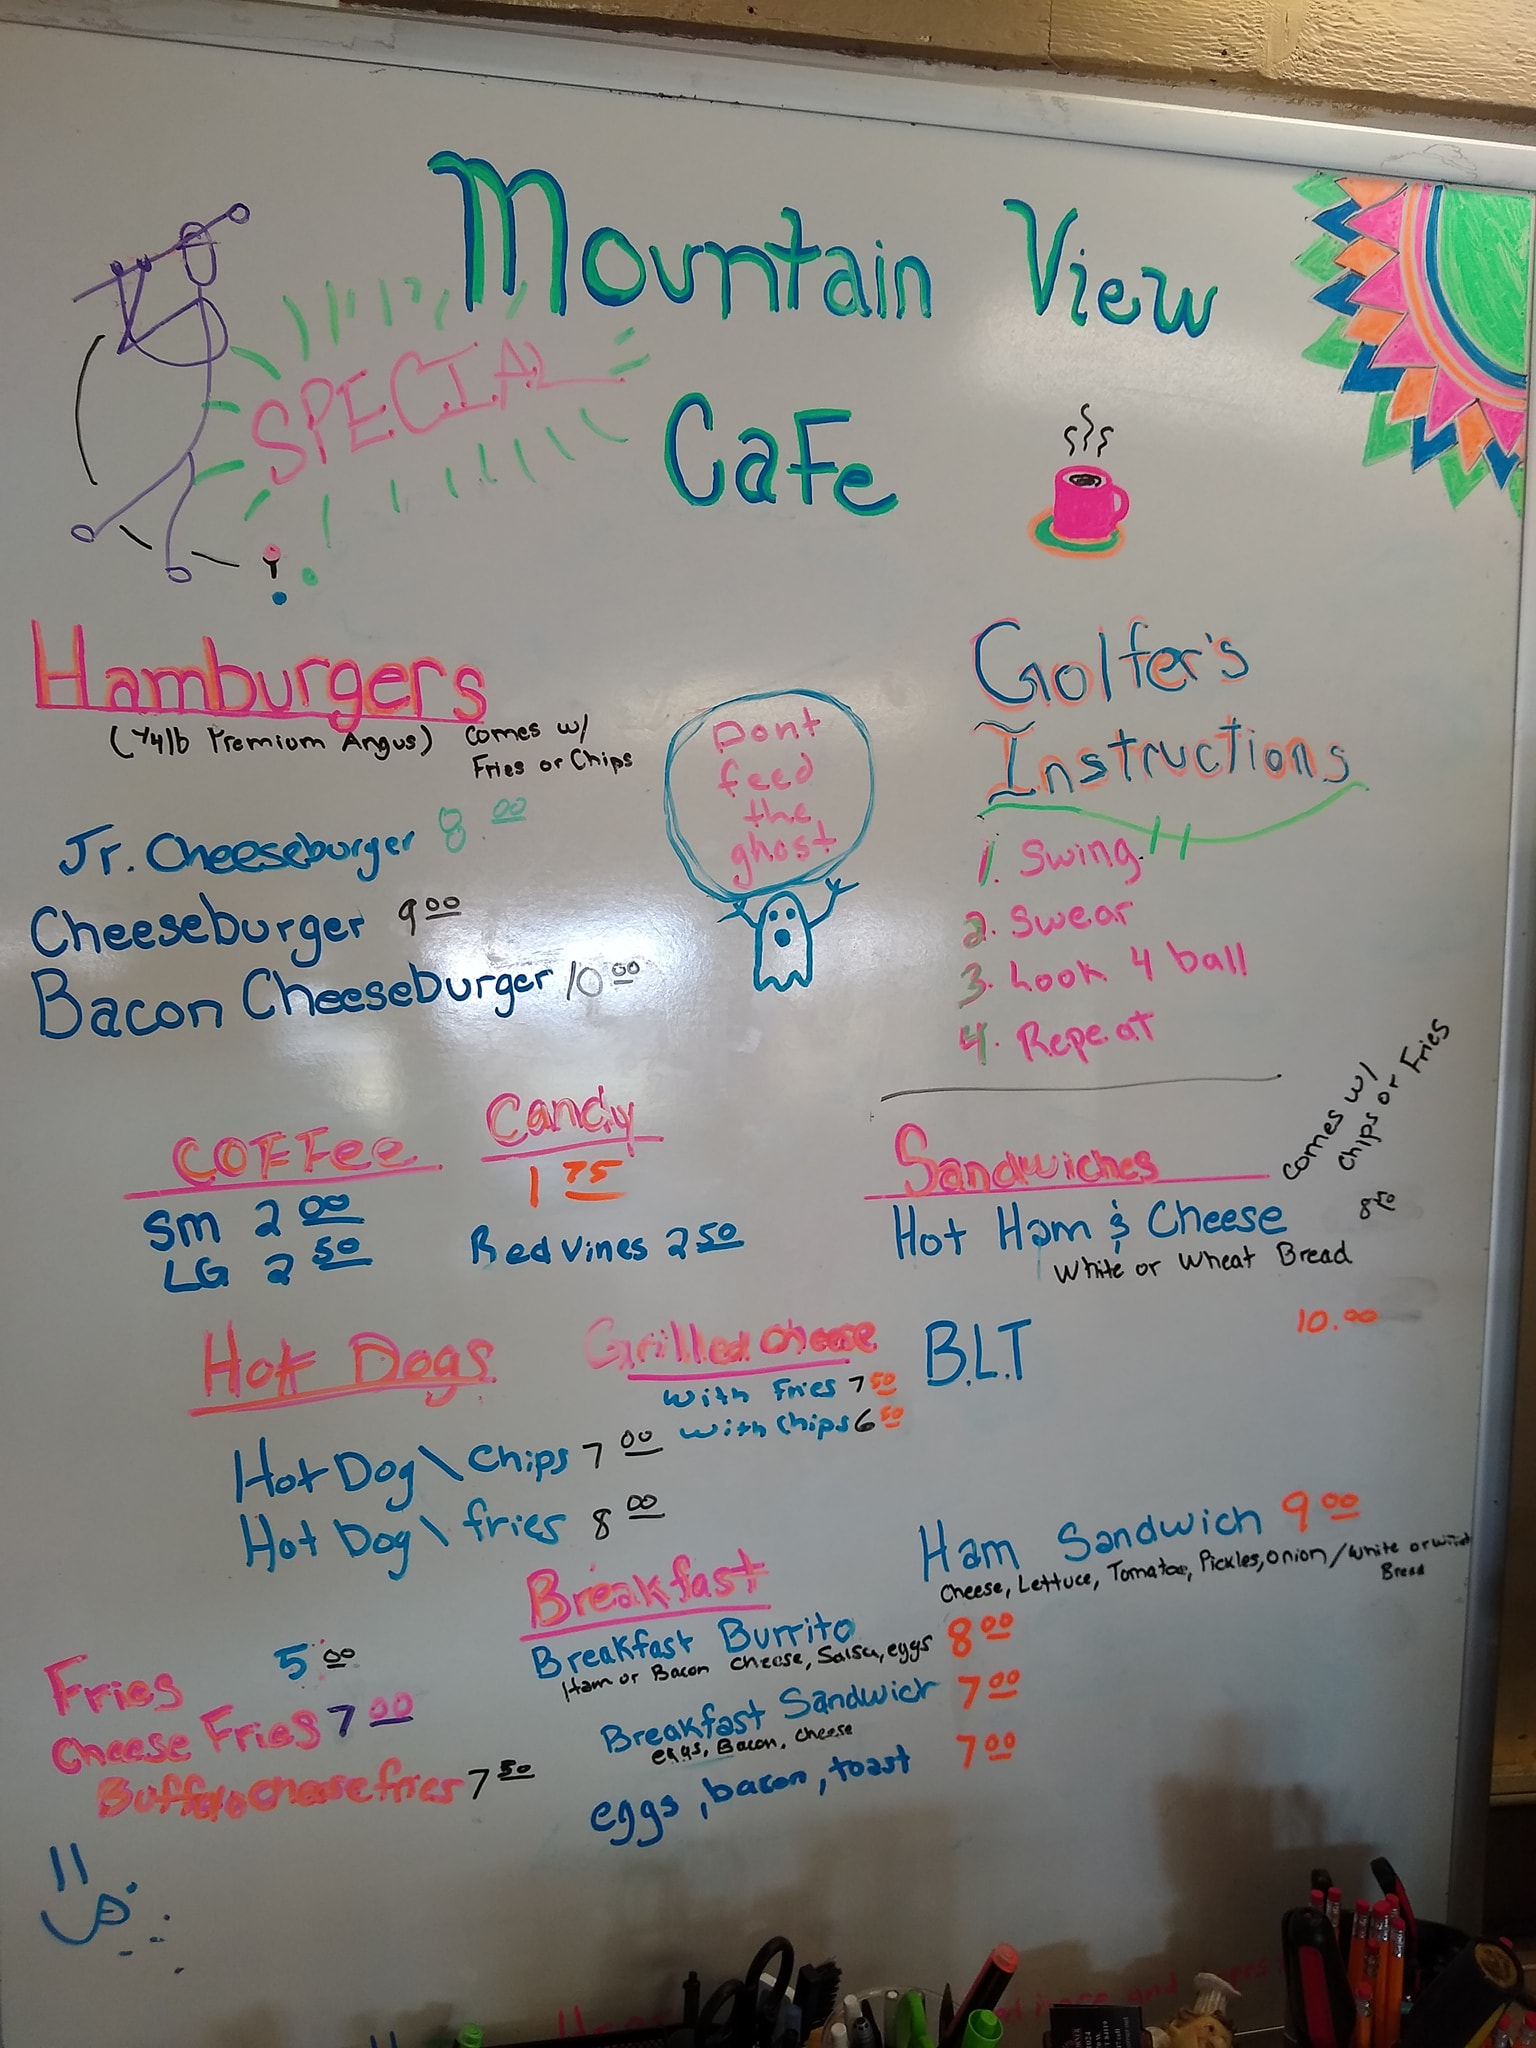 Mountain View
Cafe
SPECIAL
Hamburgers
(1/4lb Premium Angus)
Comes w/
Fries or Chips
Jr. Cheeseburger 8.00
Cheeseburger 9 00
Bacon Cheeseburger 10 00
Dont
feed
the
ghost
Golfer's
Instructions
1. Swing
2. Swear
3. Look 4 ball
4. Repeat
COFFee
SM 2 00
LG 2 50
Candy
1 75
Red Vines 2 50
Sandwiches
Comes w/
Chips or Fries
Hot Ham & Cheese
White or Wheat Bread
B.L.T 10.00
Ham Sandwich 9 00
Cheese, Lettuce, Tomatoe, Pickles, Onion / White or
Bread
Hot Dogs
Hot Dog \ Chips 7 00
Hot Dog \ fries 8 00
Grilled Cheese
With Fries 7 50
With Chips 6 50
Breakfast
Breakfast Burrito 8 00
Ham or Bacon Cheese, Salsa, eggs
Breakfast Sandwich 7 00
eggs, Bacon, Cheese
eggs, bacon, toast 7 00
Fries 5 00
Cheese Fries 7 00
Buffalo Cheese fries 7 50